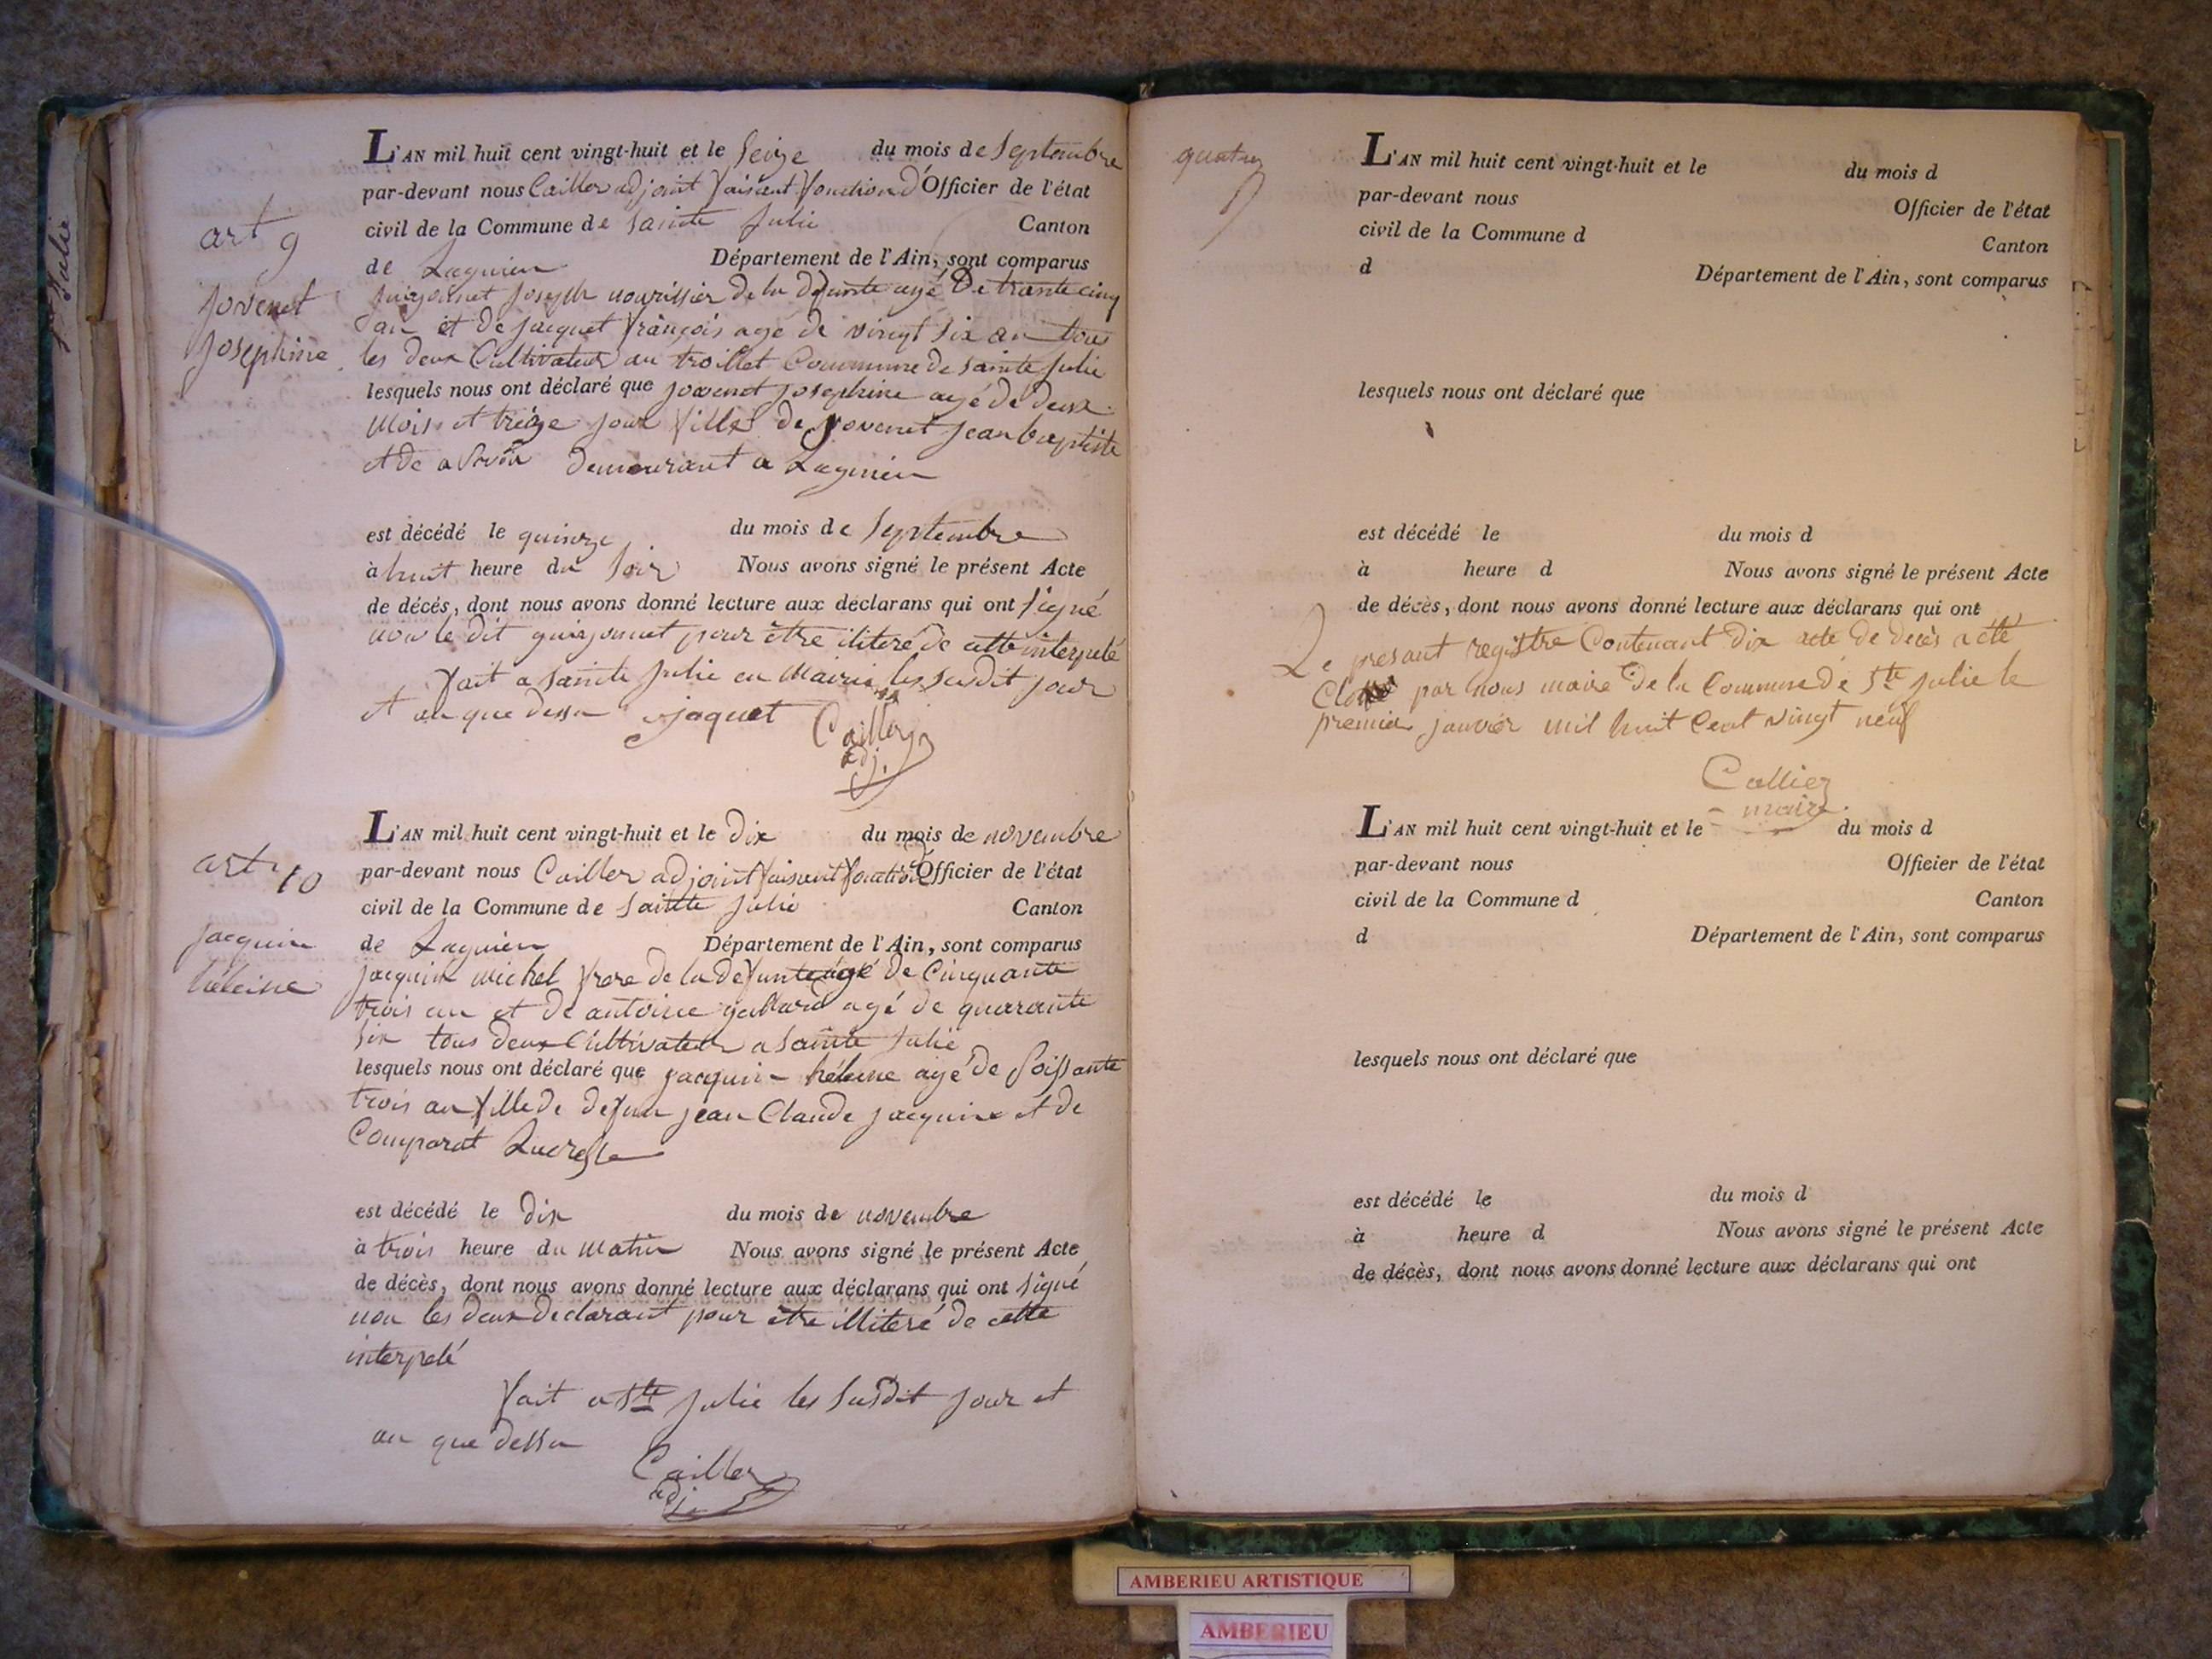 Ste Julie
art 9
jovenet
josephine
L'AN mil huit cent vingt-huit et le seize du mois de Septembre
par-devant nous Cailler adjoint faisant fonction d'Officier de l'état
civil de la Commune de Sainte Julie Canton
de Lagnieu Département de l'Ain, sont comparus
joseph nourissier de la defunte agé De trante cinq
an et de jacquet françois agé de vingt six an tous
les deux Cultivateur au troillet Commune de Sainte Julie
lesquels nous ont déclaré que jovenet josephine agé de deux
Mois et treize jour fille de jovenet jean baptiste
et de demeurant a Lagnieu
est décédé le quinze du mois de Septembre
à huit heure du Soir Nous avons signé le présent Acte
de décés, dont nous avons donné lecture aux déclarans qui ont signé
non le dit pour être ilitere de cette interpelé
fait a Sainte Julie en Mairie les susdit jour
et an que dessu jaquet Cailler
adj.
art 10
jacquin
héleine
L'AN mil huit cent vingt-huit et le Dix du mois de novembre
par-devant nous Cailler adjoint faisant fonction d'Officier de l'état
civil de la Commune de Sainte Julie Canton
de Lagnieu Département de l'Ain, sont comparus
jacquin michel frere de la defunte agé de Cinquante
trois an et de antoine gallard agé de quarante
six tous deux Cultivateur a Sainte Julie
lesquels nous ont déclaré que jacquin héleine agé de Soissante
trois an fille de defun jean Claude jacquin et de
Comparat Lucresse
est décédé le dix du mois de novembre
à trois heure du matin Nous avons signé le présent Acte
de décès, dont nous avons donné lecture aux déclarans qui ont signé
non les deux declarant pour être illiteré de cette
interpelé
fait a Ste Julie les susdit jour et
an que dessu
Cailler
adj
quatre
L'AN mil huit cent vingt-huit et le du mois d
par-devant nous Officier de l'état
civil de la Commune d Canton
d Département de l'Ain, sont comparus
lesquels nous ont déclaré que
est décédé le du mois d
à heure d Nous avons signé le présent Acte
de décès, dont nous avons donné lecture aux déclarans qui ont
Le present registre Contenant dix acte de decès a été
Clos par nous maire de la Commune de Ste Julie le
premier janvier mil huit Cent vingt neuf
Callier
maire
L'AN mil huit cent vingt-huit et le du mois d
par-devant nous Officier de l'état
civil de la Commune d Canton
d Département de l'Ain, sont comparus
lesquels nous ont déclaré que
est décédé le du mois d
à heure d Nous avons signé le présent Acte
de décès, dont nous avons donné lecture aux déclarans qui ont
AMBERIEU ARTISTIQUE
AMBERIEU